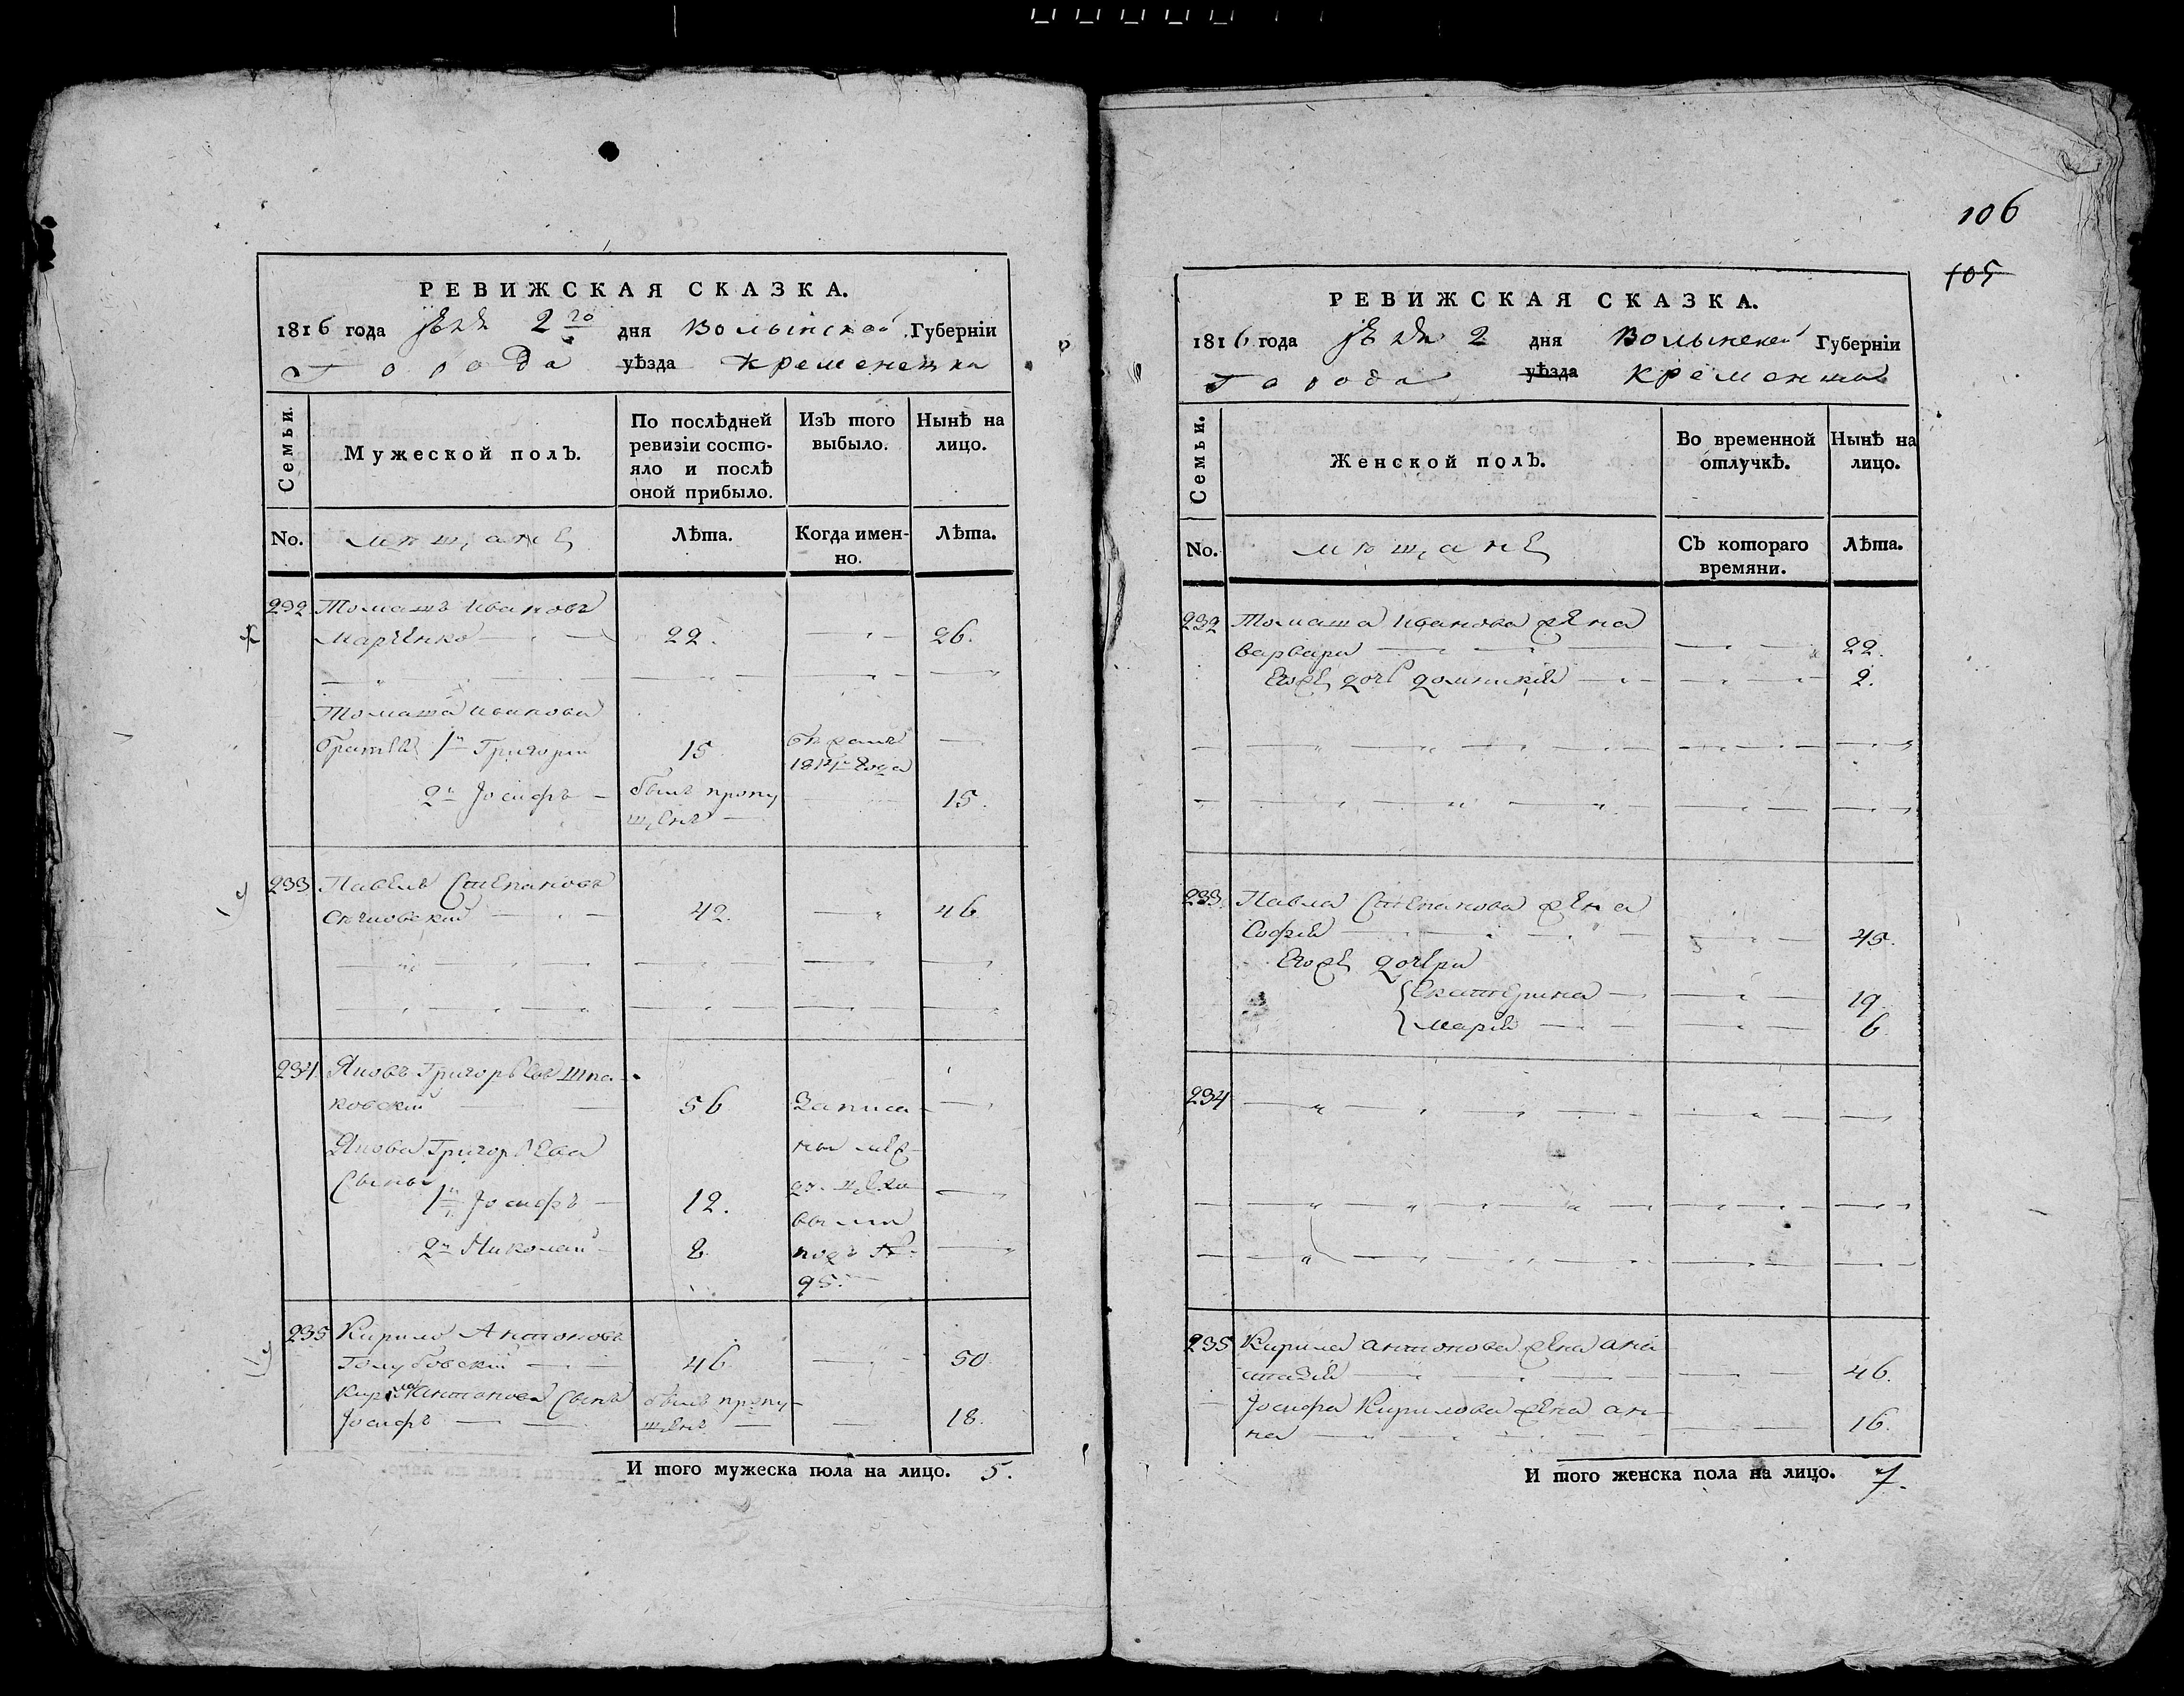 106
105
РЕВИЖСКАЯ СКАЗКА.
1816 года 2го дня Волынской Губерніи
Города уѣзда Кременетца
Семьи.
Мужеской полъ.
По послѣдней
ревизіи состо-
яло и послѣ
оной прибыло.
Изъ того
выбыло.
Нынѣ на
лицо.
No.
мещане
Лѣта.
Когда имен-
но.
Лѣта.
232 Томашъ Ивановъ
Марченко 22. 26.
Томаша Иванова
братья 1й Григорій 15
1814го года
2й Іосифъ былъ пропу 15.
щенъ
233 Павелъ Степановъ
42. 46
234. Яковъ Григорьевъ Шпа-
ковскій 56 Записа
Якова Григорьева ны меж
Сыны
1й Іосифъ 12.
2й Николай 8. подъ №
95.
235 Кирило Антоновъ
Голубовскій 46 50
Кирила Антонова Сынъ былъ пропу-
Іосифъ щенъ 18.
И того мужеска пола на лицо. 5.
РЕВИЖСКАЯ СКАЗКА.
1816 года 2 дня Волынской Губерніи
Города уѣзда Кременца
Семьи.
Женской полъ.
Во временной
отлучкѣ.
Нынѣ на
лицо.
No.
мещане
Съ котораго
времяни.
Лѣта.
232 Томаша Иванова жена
Варвара 22.
Егоже дочь Домникія 2.
233. Павла Степанова жена
Софія 45.
Егоже дочери
Екатерина 19
Марія 6
234
235 Кирила Антонова жена Ана
стазія 46.
Іосифа Кирилова жена Ан-
на 16.
И того женска пола на лицо. 7.